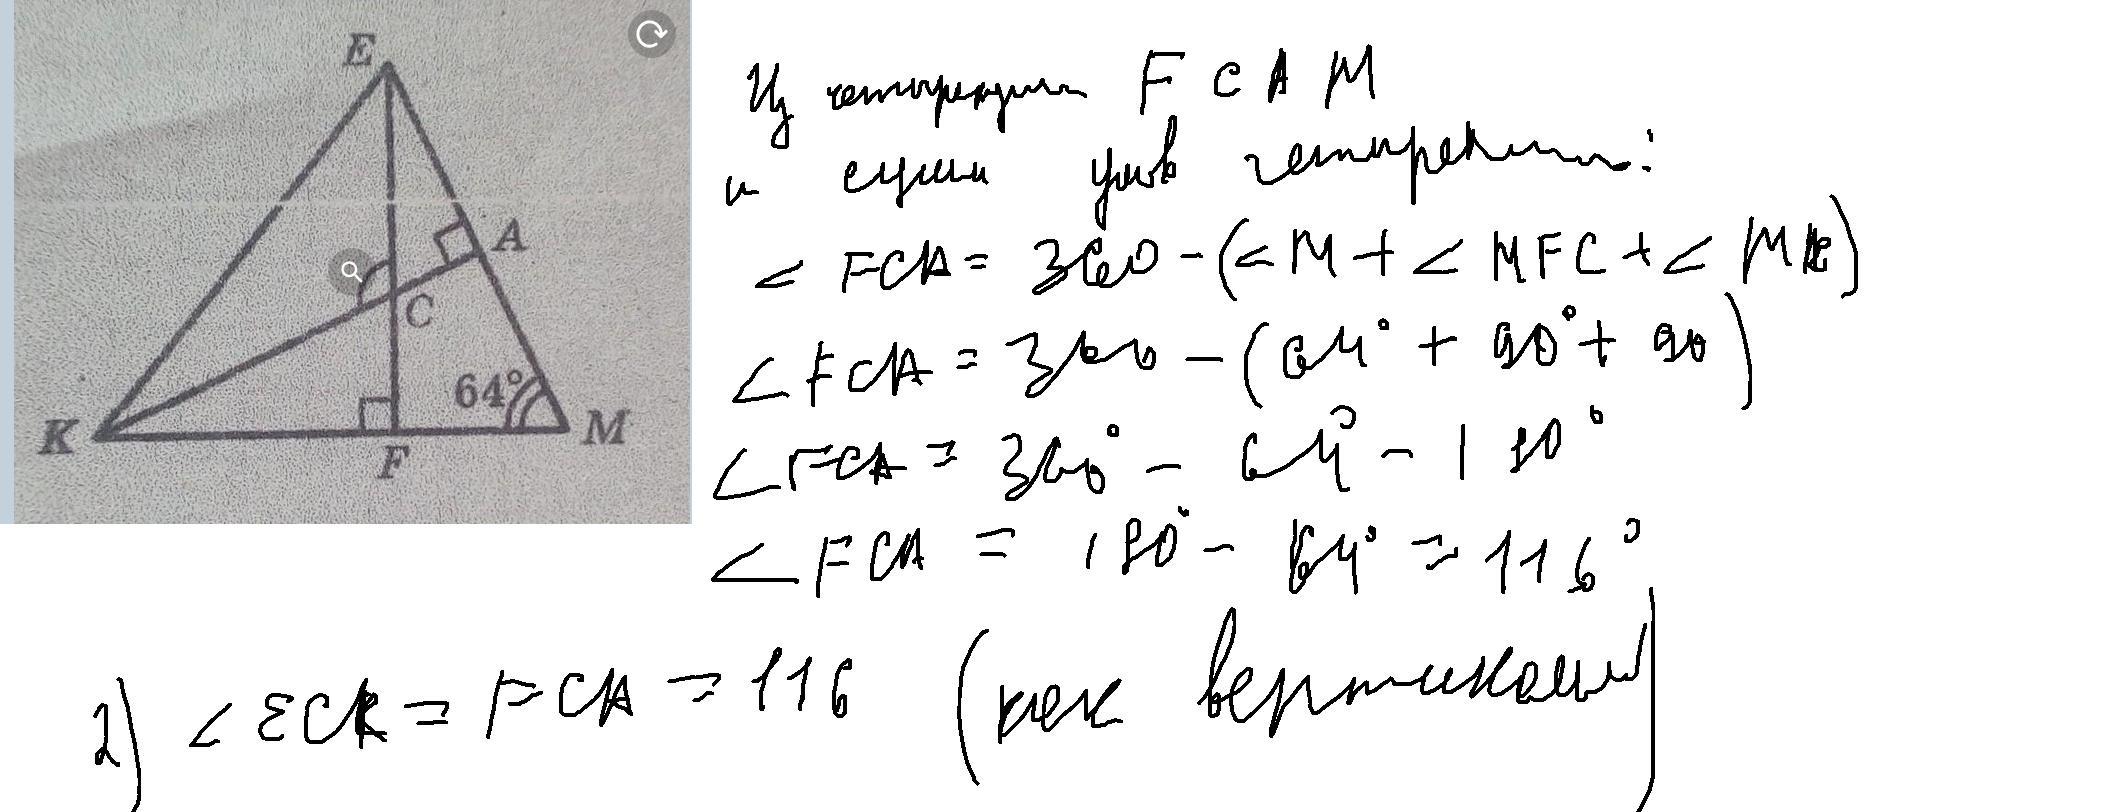 E
A
C
64°
K
F
M
Из четырехугольн FCAM
и суммы углов четырехугольн:
∠FCA = 360 - (∠M + ∠MFC + ∠MAC)
∠FCA = 360 - (64° + 90° + 90)
∠FCA = 360° - 64° - 180°
∠FCA = 180° - 64° = 116°
2) ∠ECK = FCA = 116 (как вертикальн)